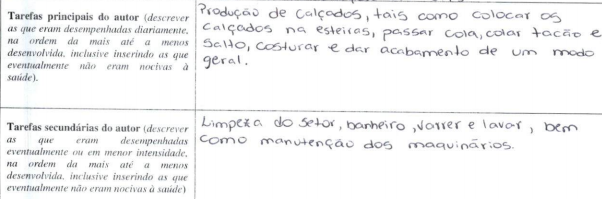 Tarefas principais do autor (descrever
as que eram desempenhadas diariamente,
na ordem da mais até a menos
desenvolvida, inclusive inserindo as que
eventualmente não eram nocivas à
saúde).
Produção de calçados, tais como colocar os
calçados na esteiras, passar cola, colar tacão e
salto, costurar e dar acabamento de um modo
geral.
Tarefas secundárias do autor (descrever
as que eram desempenhadas
eventualmente ou em menor intensidade,
na ordem da mais até a menos
desenvolvida, inclusive inserindo as que
eventualmente não eram nocivas à saúde)
Limpeza do setor, banheiro, varrer e lavar, bem
como manutenção dos maquinários.